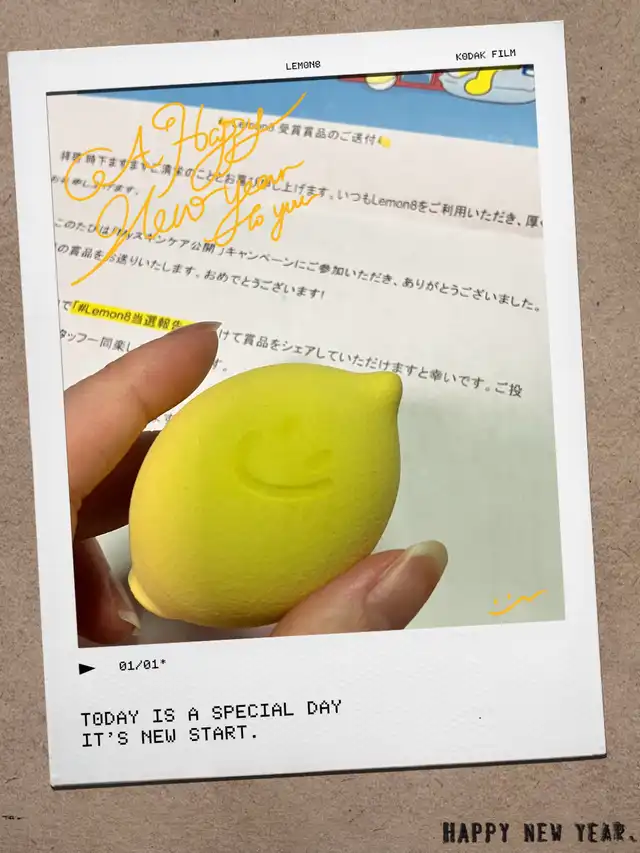 LEMON8
KODAK FILM
A Happy
New Year
to you
Lemon8 受賞賞品のご送付
拝啓 時下ますますご清栄のこととお慶び申し上げます。いつもLemon8をご利用いただき、厚く
お礼申し上げます。
このたびは「Myスキンケア公開」キャンペーンにご参加いただき、ありがとうございました。
の賞品をお送りいたします。おめでとうございます!
で「#Lemon8当選報告 けて賞品をシェアしていただけますと幸いです。ご投
タッフ一同楽し す。
01/01*
TODAY IS A SPECIAL DAY
IT'S NEW START.
HAPPY NEW YEAR.